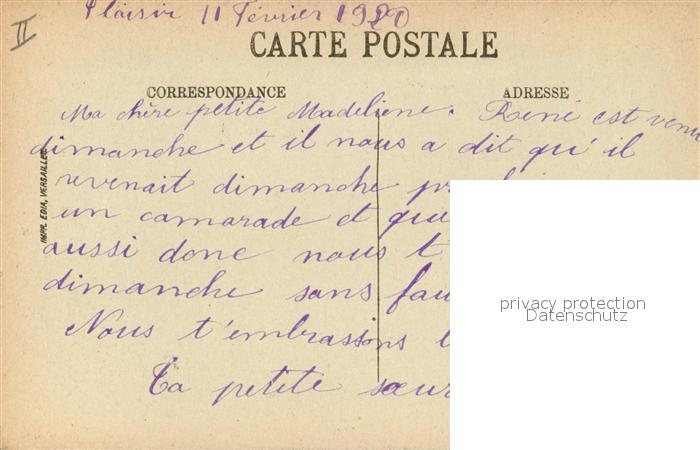 II
Plaisir 11 Février 1920
CARTE POSTALE
CORRESPONDANCE
ADRESSE
Ma chère petite Madeliene. René est venu
dimanche et il nous a dit qu'il
revenait dimanche
un camarade et que
aussi donc nous t
dimanche sans fau
Nous t'embrassons
Ta petite sœur
IMP. EDIA, VERSAILLES
privacy protection
Datenschutz